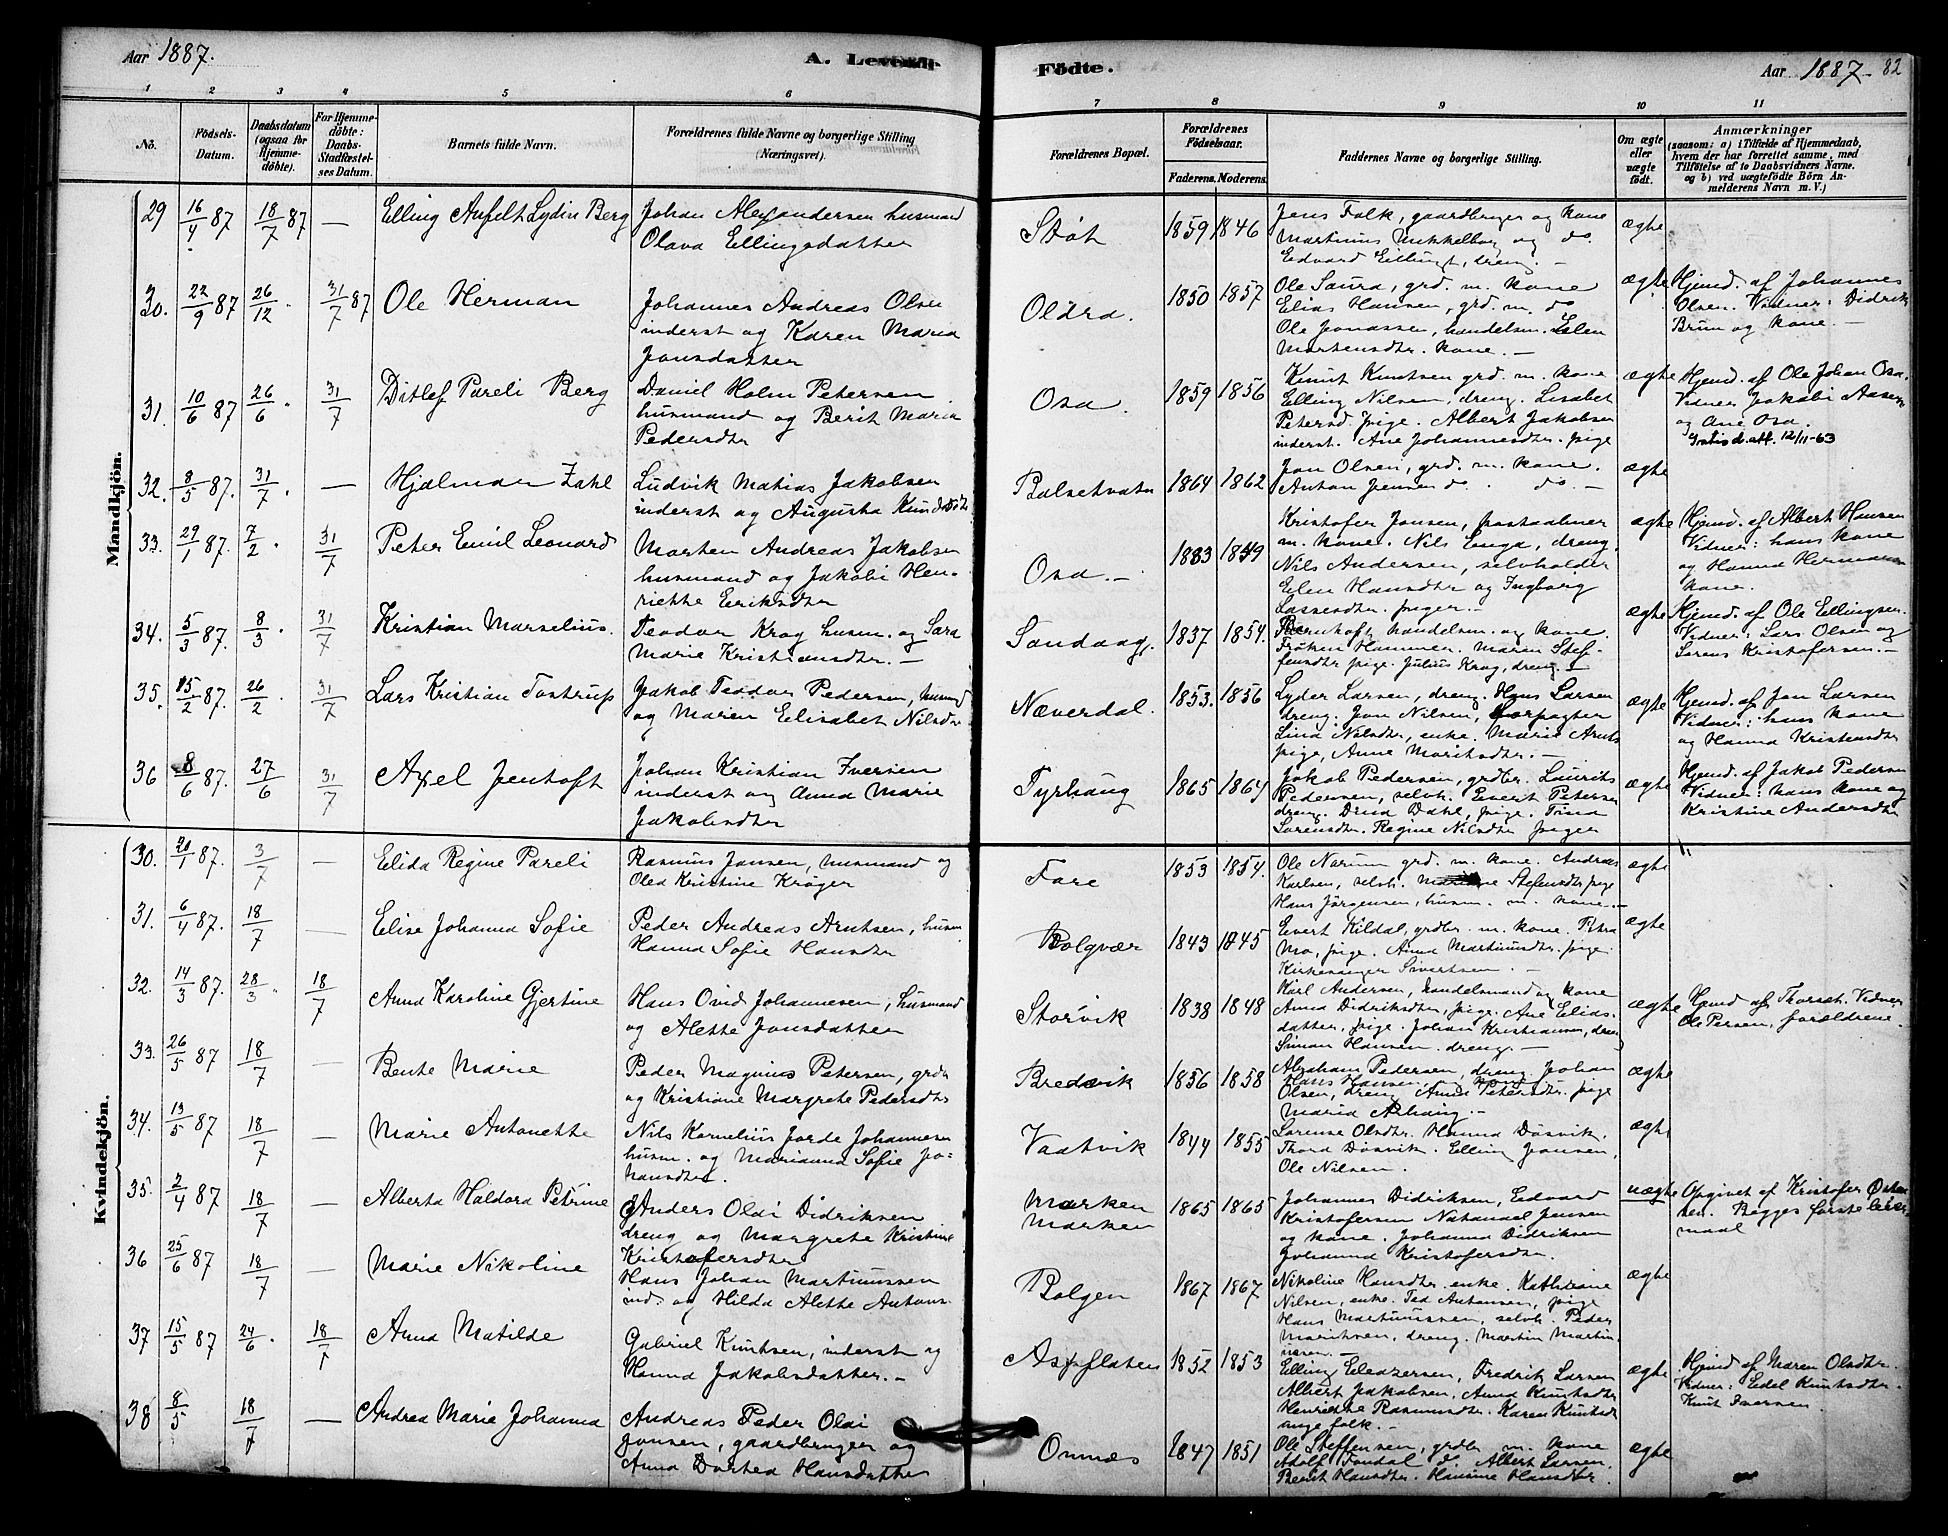 Aar 1887.
A. Levende
Födte.
Aar 1887. 82
1 2 3 4 5 6 7 8 9 10 11
No.
Födsels-Datum.
Daabsdatum (ogsaa for Hjemmedöbte).
For Hjemmedöbte: Daabs-Stadfæstelses Datum.
Barnets fulde Navn.
Forældrenes fulde Navne og borgerlige Stilling (Næringsvei).
Forældrenes Bopæl.
Forældrenes Födselsaar.
Faderens. Moderens.
Faddernes Navne og borgerlige Stilling.
Om ægte eller uægte födt.
Anmærkninger
(saasom: a) i Tilfælde af Hjemmedaab, hvem der har forrettet samme, med Tilföielse af to Daabsvidners Navne. og b) ved uægtefödte Börn Anmelderens Navn m. V.)
Mandkjön.
29 16/4 87 18/7 87 — Elling Anfelt Lydin Berg
Johan Alexandersen husmand
Olava Ellingsdatter
Støt 1859 1846
Jens Falk, gaardbruger og kone
Martinus Mikkelborg og do.
Edvard Ellingt, dreng. —
ægte
30. 22/9 87 26/12 31/7 87 Ole Herman
Johannes Andreas Olsen
inderst og Karen Maria
Jonsdatter
Oldra. 1850 1857
Ole Saura, grd. m. kone
Elias Hansen, grd. m. do
Ole Jonassen, handelsm. Elen
Martensdtr. kone. —
ægte
Hjemd. af Johannes
Olsen. Vidner: Didrik
Brun og kone. —
31. 10/6 87 26/6 31/7 Ditlef Pareli Berg
Daniel Holm Petersen
husmand og Berit Maria
Pedersdtr
Osa. 1859 1856
Knut Knutsen grd. m. kone
Elling Nilsen, dreng. Lisabet
Petersd pige. Albert Jakobsen
inderst. Ane Johannesdtr. pige
ægte
Hjemd. af Ole Johan Osa.
Vidner Jakobi Aasen
og Ane Osa.
Gratis d. att. 12/11-63
32. 8/5 87. 31/7 — Hjalmar Zahl
Ludvik Matias Jakobsen
inderst og Augusta Knudsdtr
Balsetvatn 1864 1862
Jon Olsen, grd. m. kone.
Anton Jensen do. do. —
ægte
33. 29/1 87. 7/2 31/7 Peter Emil Leonard
Morten Andreas Jakobsen
husmand og Jakobi Hen-
riette Eriksdtr
Osa. — 1883 1849
Kristofer Jonsen, postaabner
m. kone. Nils Enga, dreng.
Nils Andersen, selvholder
Elen Hansdtr og Ingborg
Lassesdtr. piger. —
ægte
Hjemd. af Albert Hansen
Vidner: hans kone
og Hanna Hermansen
kone.
34. 5/3 87. 8/3 31/7 Kristian Marselius.
Teodor Krog husm. og Sara
Marie Kristiansdtr. —
Sandaag. 1837 1854.
Bernhoft handelsm. og kone.
Frøken Hammer. Maren Stef-
fensdtr pige. Julius Krog, dreng. —
ægte
Hjemd. af Ole Ellingsen.
Vidner: Lars Olsen og
Sørens Kristofersen. —
35. 15/2 87. 26/2 31/7 Lars Kristian Tostrup
Jakob Teodor Pedersen, husmd
og Maren Elisabet Nilsdtr
Næverdal. 1853. 1856
Lyder Larsen, dreng. Hans Larsen
dreng. Jon Nilsen, forpagter
Lina Nilsdtr, enke. Marie Arnts
pige, Anne Moritsdtr. —
ægte
Hjemd. af Jon Larsen
Vidner: hans kone
og Hanna Kristensdtr
36 8/6 87. 27/6 31/7 Axel Jentoft
Johan Kristian Iversen
inderst og Anna Marie
Jakobsdtr
Tyrhaug 1865 1864
Jakob Pedersen, grdbr. Laurits
Pedersen, selvh. Evert Petersen
dreng. Dina Dahl, pige. Trina
Sørensdtr. Regine Nilsdtr piger
ægte
Hjemd. af Jakob Pedersen
Vidner: hans kone og
Kristine Andersdtr
Kvindekjön.
30. 20/1 87. 3/7 — Elida Regine Pareli
Rasmus Jansen, husmand og
Olea Kristine Krøger
Fore 1853 1854.
Ole Narum grd. m. kone. Andreas
Karlsen, selvh. Stefensdtr pige
Hans Jørgensen, husm. m. kone. —
ægte
31. 6/4 87. 18/7 — Elise Johanna Sofie
Peder Andreas Arntsen, husm
Hanna Sofie Hansdtr
Bolgvær 1843 1845
Evert Kildal, grdbr. m. kone. Petra
Mo, pige. Anna Martinusdtr. pige.
Kirkesanger Sivertsen. —
ægte
32. 14/3 87. 28/3 18/7 Anna Karoline Gjertine
Hans Ovid Johannesen, husmand
og Alette Jonsdatter
Storvik 1838 1848
Karl Andersen, handelsmand og kone
Anna Didriksdtr, pige. Ane Elias-
datter, pige. Johan Kristiansen, dreng
Simon Hansen. dreng. —
ægte
Hjemd af Thorset. Vidner
Ole Persen, forældrene.
33. 26/5 87 18/7 — Bente Marie
Peder Magnus Petersen, grdr
og Kristiane Margrete Pedersdtr
Bredevik 1856 1858
Abraham Pedersen, dreng. Johan
Hans Hansen, og kone
Olsen, dreng Anna Petersdtr. pige
Maria Ashaug. —
ægte
34. 13/5 87 18/7 — Marie Antonette
Nils Kornelius Jorde Johannesen
husm. og Marianna Sofie Jo-
hansdtr.
Vaatvik 1844 1855
Lorense Olsdtr. Hanna Dosvik.
Thora Dosvik. Elling Jensen,
Ole Nilsen.
ægte
35. 2/4 87 18/7 — Alberta Haldora Petrine
Anders Olai Didriksen
dreng og Margrete Kristine
Kristofersdtr
Marken
Marken
1865 1865
Johannes Didriksen, Edvard
Kristofersen Natanael Jensen
og kone. Johanna Didriksen
Johanna Kristofersdtr.
uægte
Opgivet af Kristofer
Begges første leier-
maal
36 25/6 87 18/7 — Marie Nikoline
Hans Johan Martinussen
ind. og Hilda Alette Antons.
Bolgen 1867 1867
Nikoline Hansdtr. enke. Kathrine
Nilsen, enke. Tea Antonsen, pige
Hans Martinussen, selvh. Peder
Moritsen, dreng. Martin Martin
usen. —
ægte
37 15/5 87 24/6 18/7 Anna Matilde
Gabriel Knutsen, inderst og
Hanna Jakobsdatter. —
Aspfloten 1852 1853
Elling Eleazersen, Fredrik Larsen
Albert Jakobsen, Anna Knutsdtr
Henriette Rasmusdtr. Karen Knutsd
unge folk. —
ægte
Hjemd af Maren Olsdtr.
Vidner: Edel Knutsdtr.
Knut Iversen.
38 8/5 18/7 — Andrea Marie Johanna
Andreas Peder Olai
Jonsen, gaardbruger og
Anna Dortea Hansdatter
Ornæs 1847 1851
Ole Steffensen, grdbr m. kone
Adolf Fondal d. Albert Larsen,
Berit Hansdtr. Hansine Hansdtr.
ægte